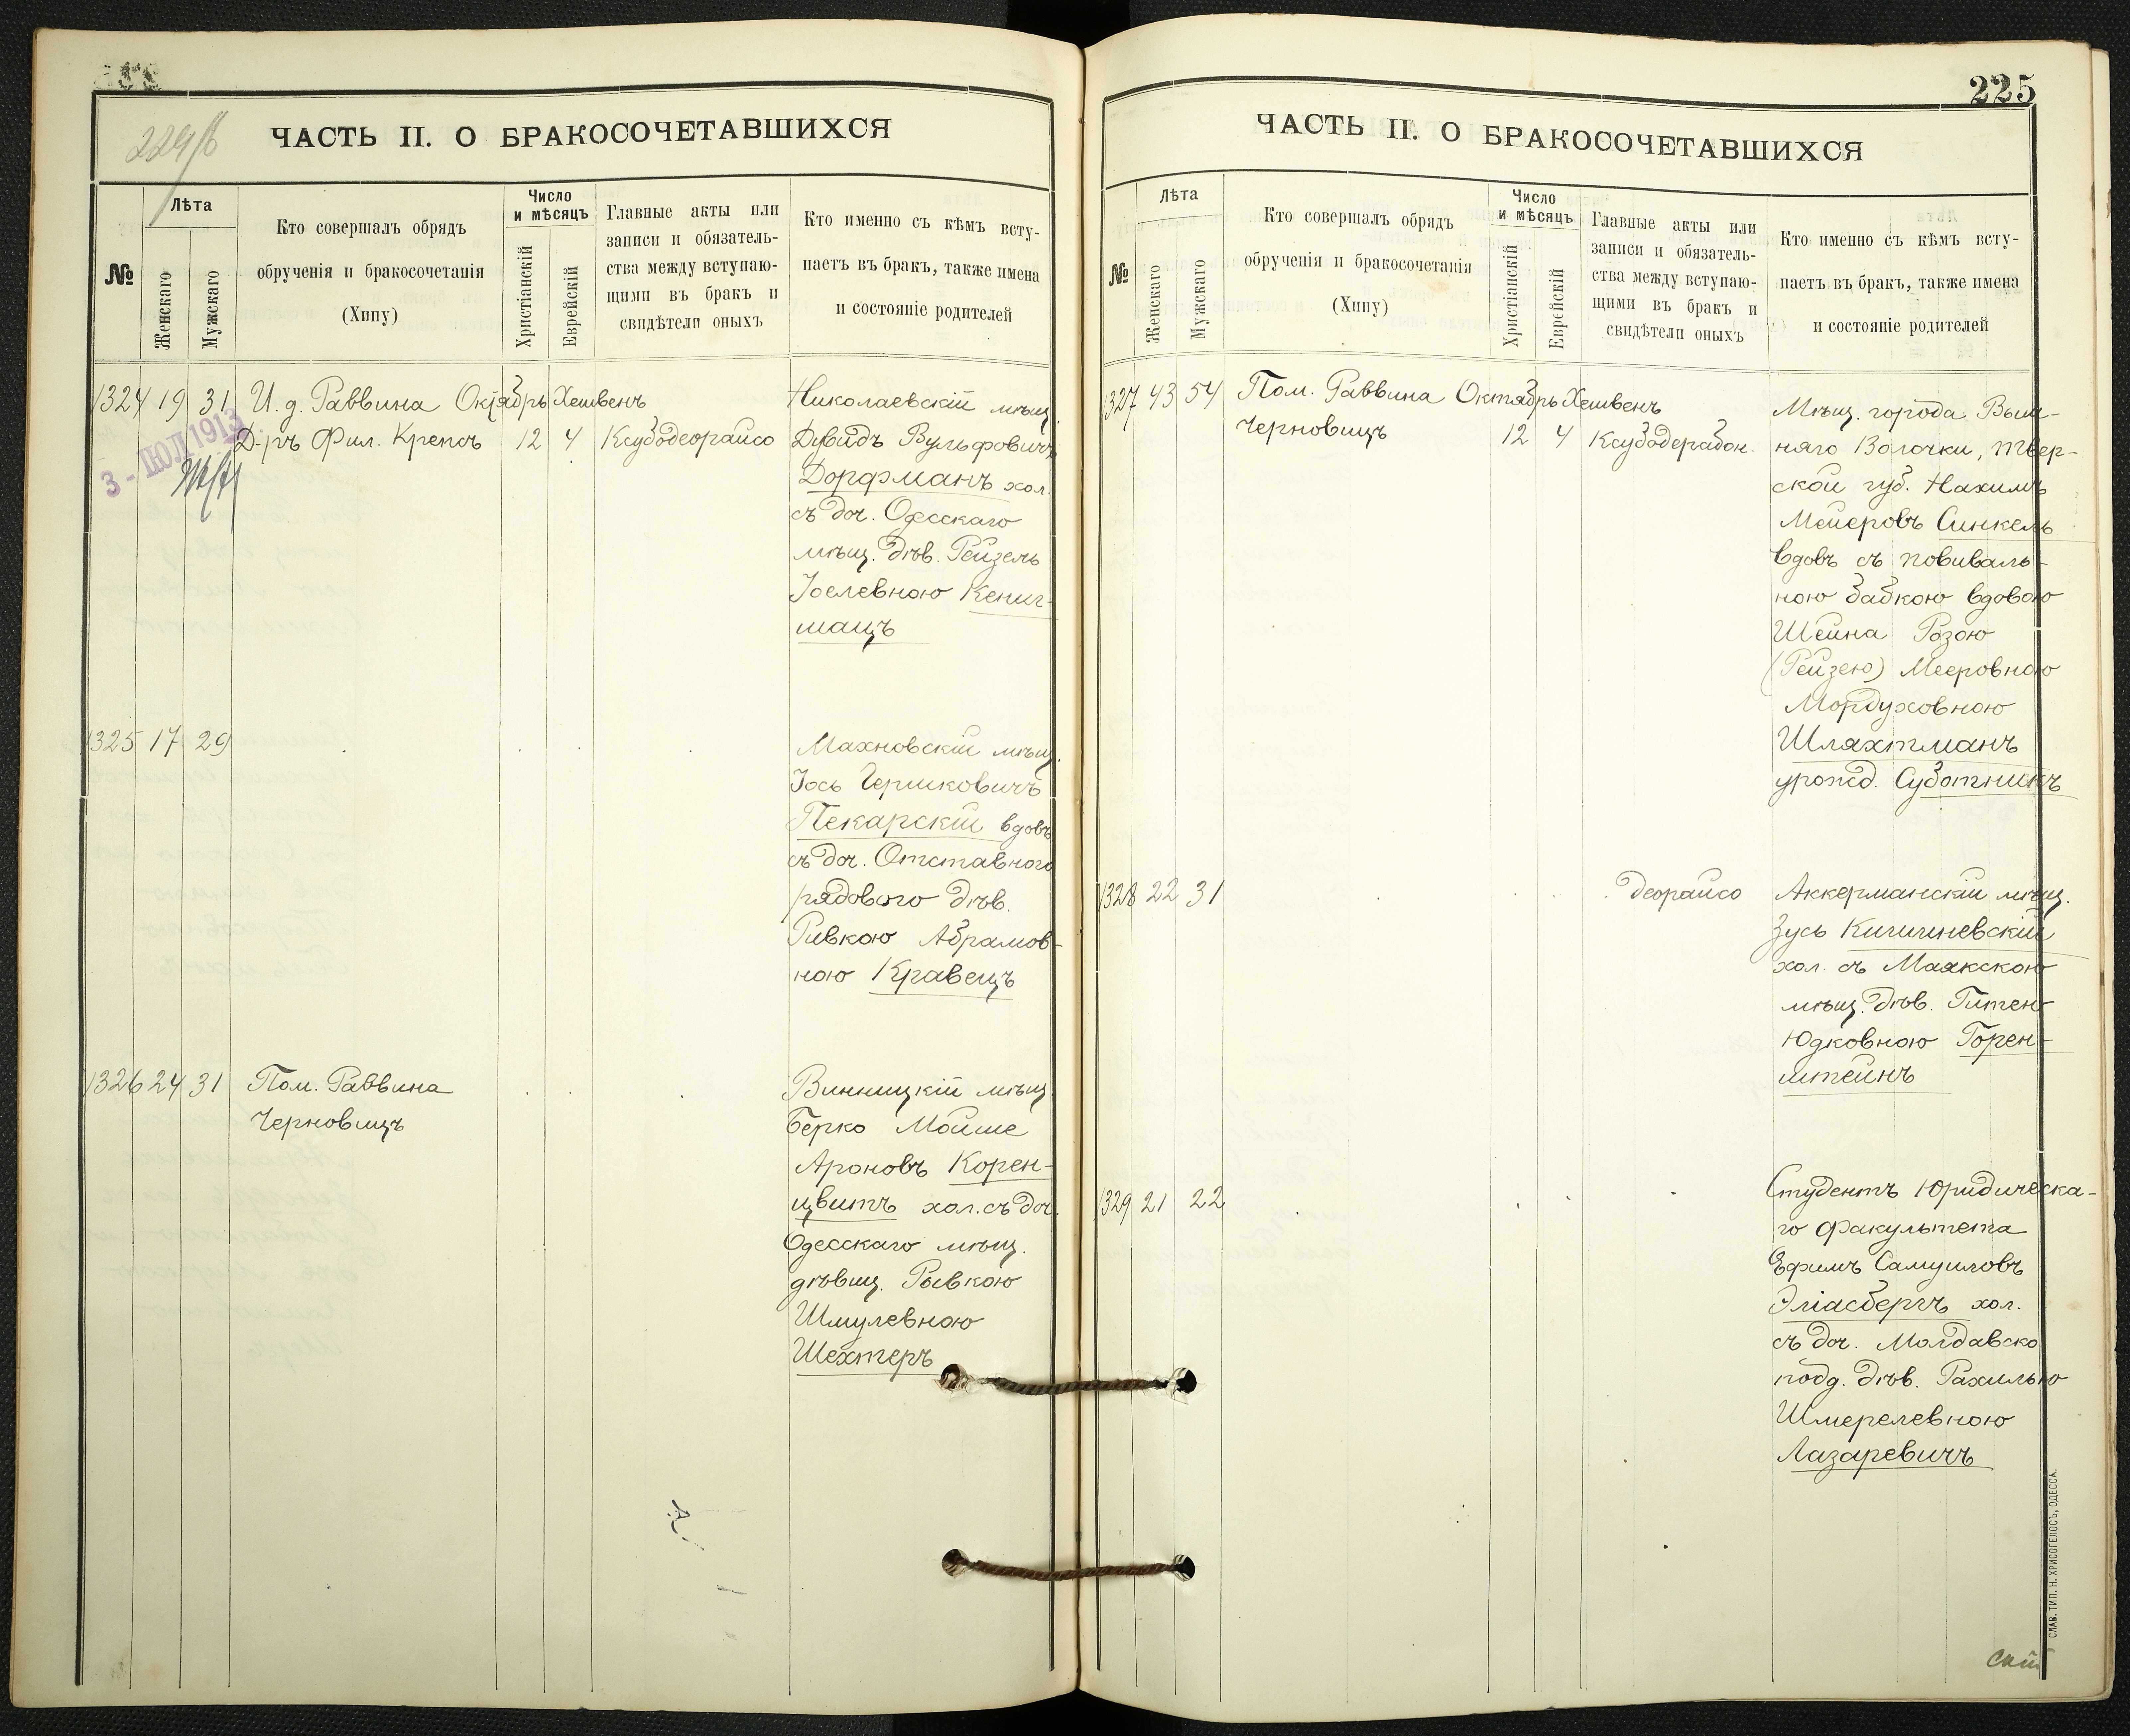 224/б
ЧАСТЬ II. О БРАКОСОЧЕТАВШИХСЯ
№
Лѣта
Женскаго
Мужскаго
Кто совершалъ обрядъ
обрученія и бракосочетанія
(Хипу)
Число
и мѣсяцъ
Христіанскій
Еврейскій
Главные акты или
записи и обязатель-
ства между вступаю-
щими въ бракъ и
свидѣтели оныхъ
Кто именно съ кѣмъ всту-
паетъ въ бракъ, также имена
и состояніе родителей
1324 19 31 И. д. Раввина Октябрь Хешвенъ
Д-ръ Фил. Крепсъ 12 4 Ксубодеорайсо
3 - ІЮЛ 1913
Николаевскій мѣщ.
Дувидъ Вульфовичъ
Дорфманъ хол.
съ доч. Одесскаго
мѣщ. дѣв. Рейзель
Іоселевною Кениг-
шацъ
1325 17 29
Махновскій мѣщ.
Іось Гершковичъ
Пекарскій вдовъ
съ доч. Отставного
рядового дѣв.
Ривкою Абрамов-
ною Кравецъ
1326 24 31 Пом. Раввина
Черновицъ
Винницкій мѣщ.
Берко Мойше
Ароновъ Корен-
цвитъ хол. съ доч.
Одесскаго мѣщ.
дѣвиц. Рывкою
Шмулевною
Шехтеръ
225
ЧАСТЬ II. О БРАКОСОЧЕТАВШИХСЯ
№
Лѣта
Женскаго
Мужскаго
Кто совершалъ обрядъ
обрученія и бракосочетанія
(Хипу)
Число
и мѣсяцъ
Христіанскій
Еврейскій
Главные акты или
записи и обязатель-
ства между вступаю-
щими въ бракъ и
свидѣтели оныхъ
Кто именно съ кѣмъ всту-
паетъ въ бракъ, также имена
и состояніе родителей
1327 43 54 Пом. Раввина Октябрь Хешвенъ
Черновицъ 12 4 Ксубодерабон.
Мѣщ. города Выш-
няго Волочки, Твер-
ской губ. Нахимъ
Мейеровъ Синкель
вдовъ съ повиваль-
ною бабкою вдовою
Шейна Розою
(Рейзею) Мееровною
Мордуховною
Шляхтманъ
урожд. Суботникъ
1328 22 31 деорайсо
Аккерманскій мѣщ.
Зусь Кишиневскій
хол. съ Маякскою
мѣщ. дѣв. Гитею
Юдковною Горен-
штейнъ
1329 21 22
Студентъ Юридическа-
го факультета
Ефимъ Самуиловъ
Эліасбергъ хол.
съ доч. Молдавско
подд. дѣв. Рахилью
Шмерелевною
Лазаревичъ
СЛАВ. ТИП. Н. ХРИСОГЕЛОСЪ, ОДЕССА.